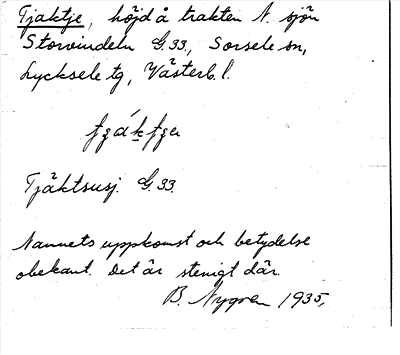 Tjaktje, höjd å trakten N. sjön
Storvindeln G.33., Sorsele sn,
Lycksele tg, Västerb. l.
Tjäktsusj. G.33.
Namnets uppkomst och betydelse
obekant. Det är stenigt där.
B. Nygren 1935,